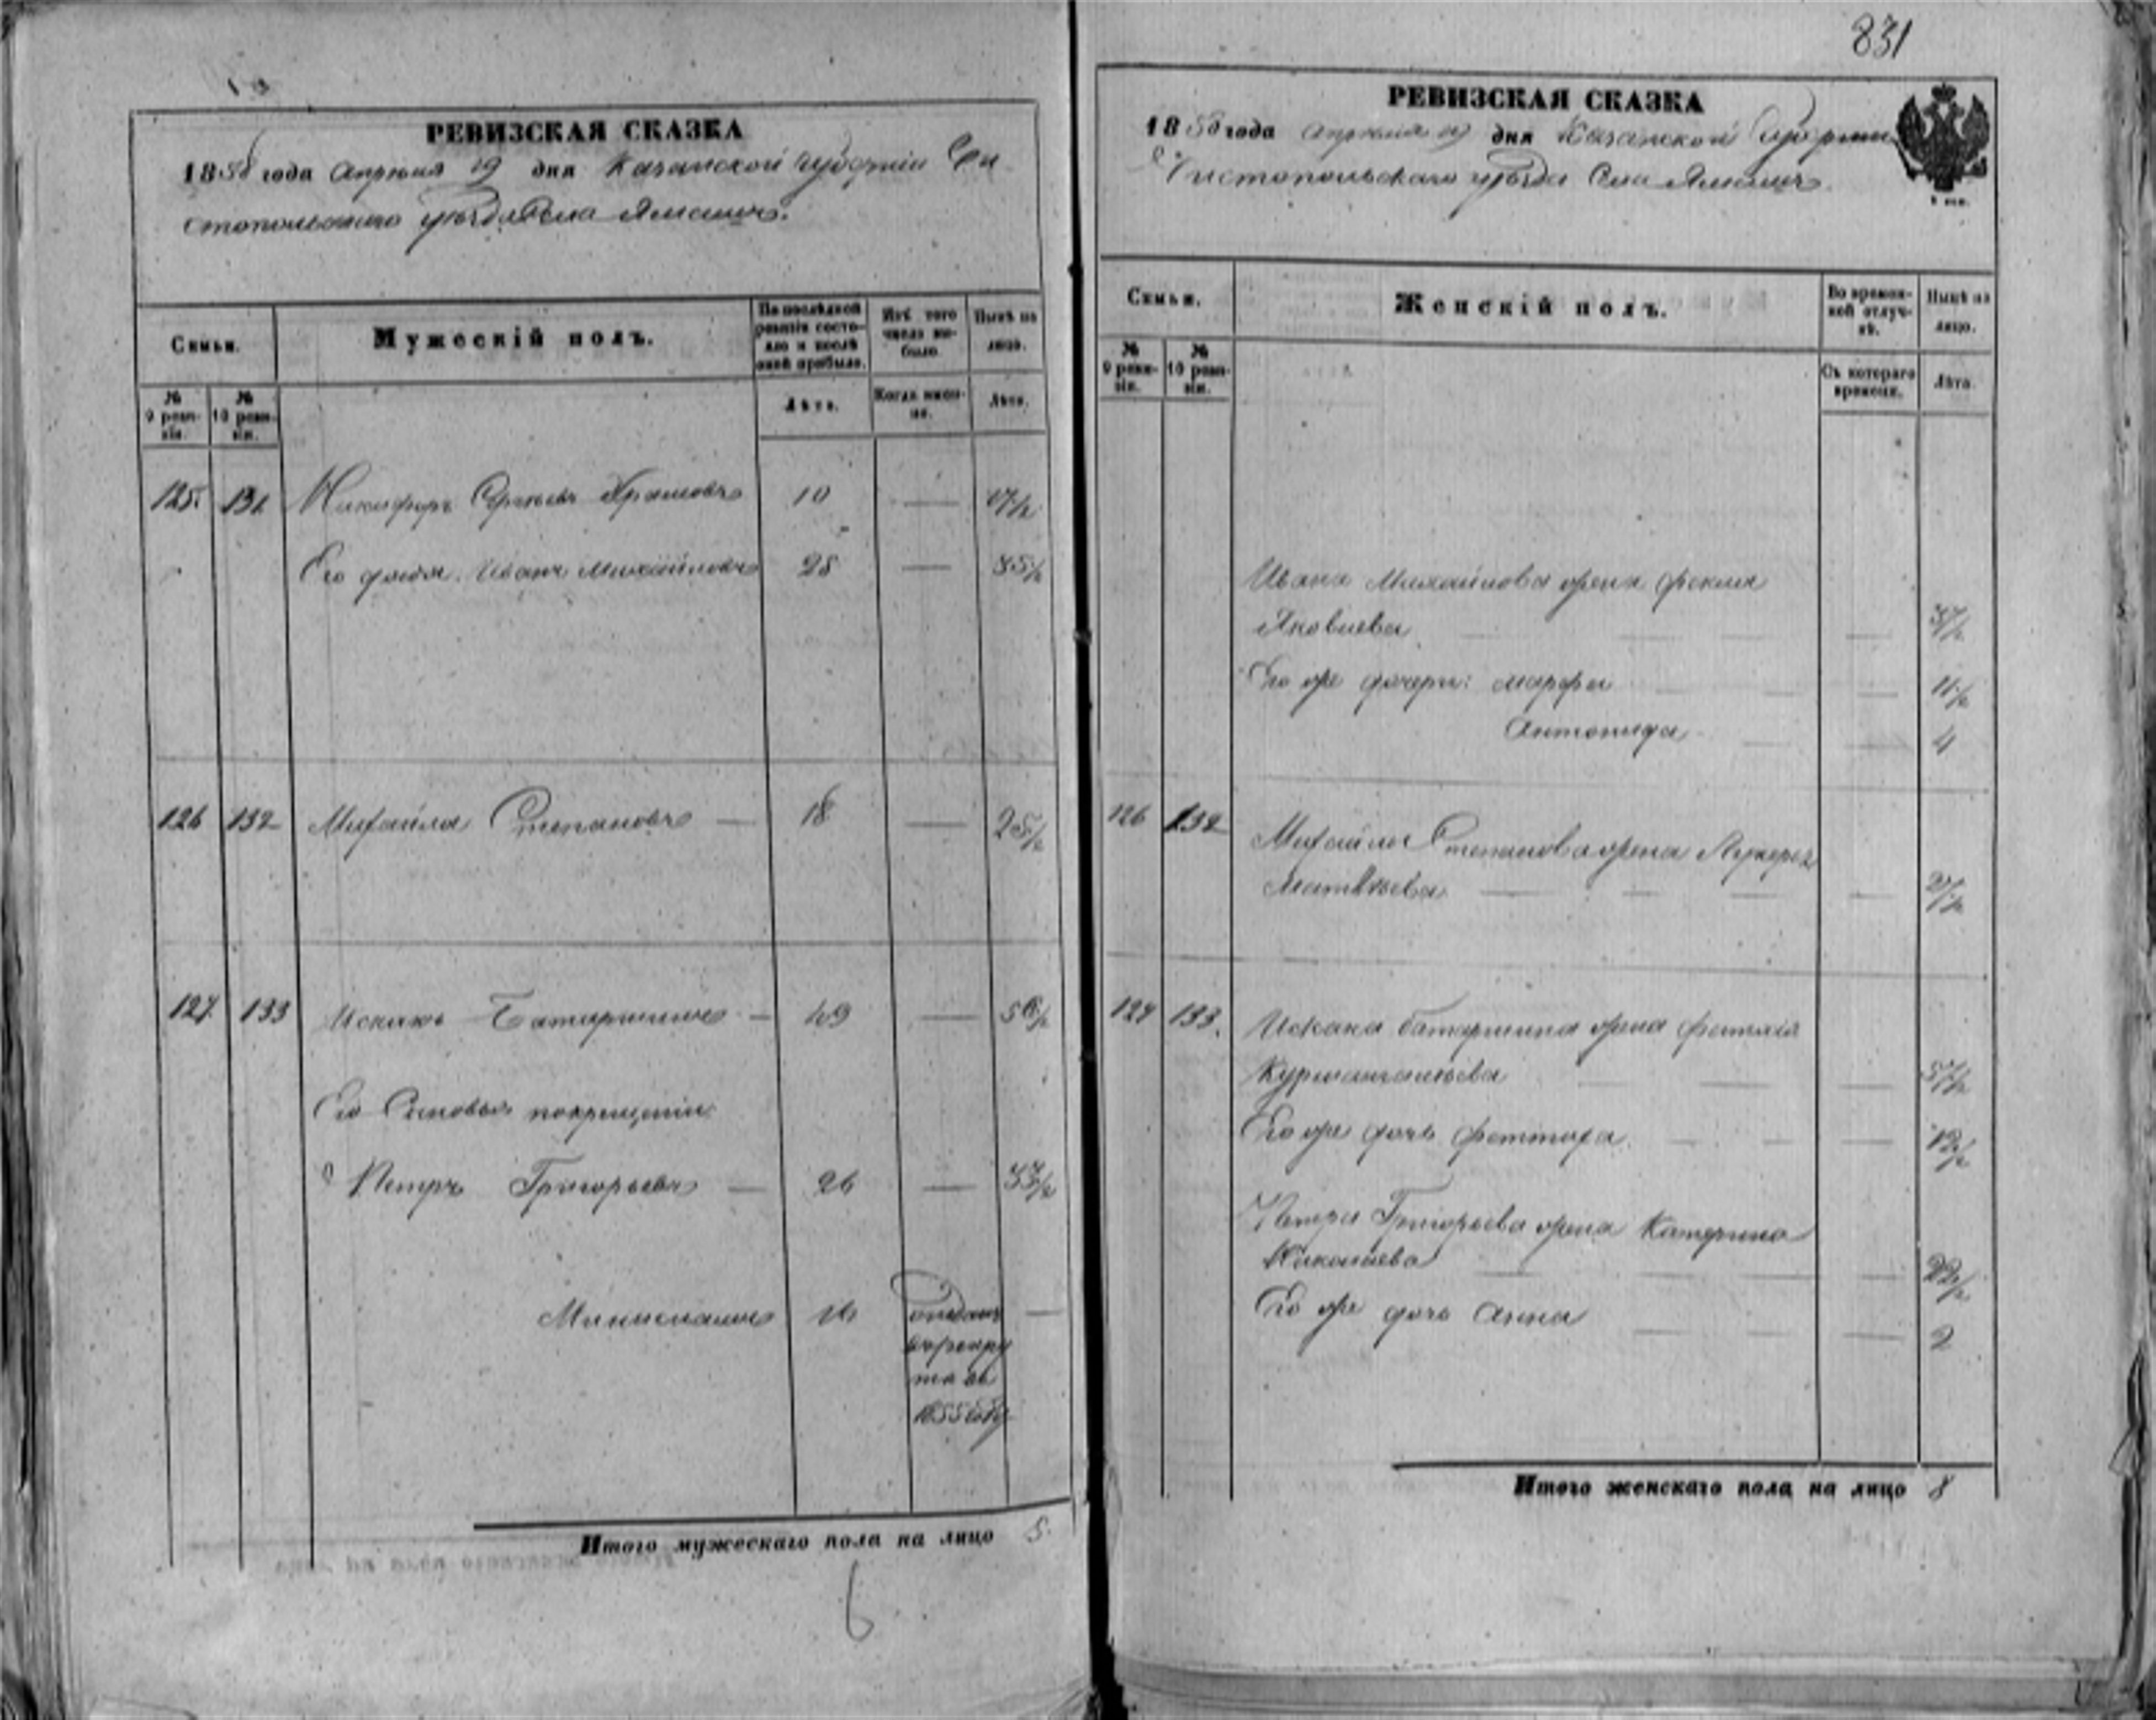 РЕВИЗСКАЯ СКАЗКА
1858 года Апреля 19 дня Казанской Губерніи Чи-
стопольскаго уезда Села
Семьи.
Мужескій полъ.
По последней ревизіи состояло и после оной прибыло.
Изъ того числа выбыло.
Ныне на лицо.
№ 9 ревизіи.
№ 10 ревизіи.
Лета.
Когда именно.
Лета.
125. 131. Никифоръ Сергеевъ 10 — 17½
Его дядя Иванъ Михайловъ 28 — 35½
126 132 Михайла Степановъ — 18 — 25½
127. 133 Искакъ Батаршинъ — 49 — 56½
Его Сыновья по крещеніи
Петръ Григорьевъ — 26 — 33½
16 отданъ —
въ рекру
та въ
1855 году
Итого мужескаго пола на лицо 5.
6
831
РЕВИЗСКАЯ СКАЗКА
1858 года Апреля 19 дня Казанской Губерніи
Чистопольскаго уезда Села
Семьи.
Женскій полъ.
Во временной отлучке.
Ныне на лицо.
№ 9 ревизіи.
№ 10 ревизіи.
Съ котораго времени.
Лета.
Ивана Михайлова жена Фекла
Яковлева — — — — 37½
Его же дочери: Марфа — — — 11½
Антонида — — 4
126 132 Михайлы Степанова жена Лукерья
Матвеева — — — — 27½
127 133. Искака Батаршина жена
— — — — 57½
Его же дочь — — — 12½
Петра Григорьева жена Катерина
Николаева — — — — 22½
Его же дочь Анна — — — — 2
Итого женскаго пола на лицо 8